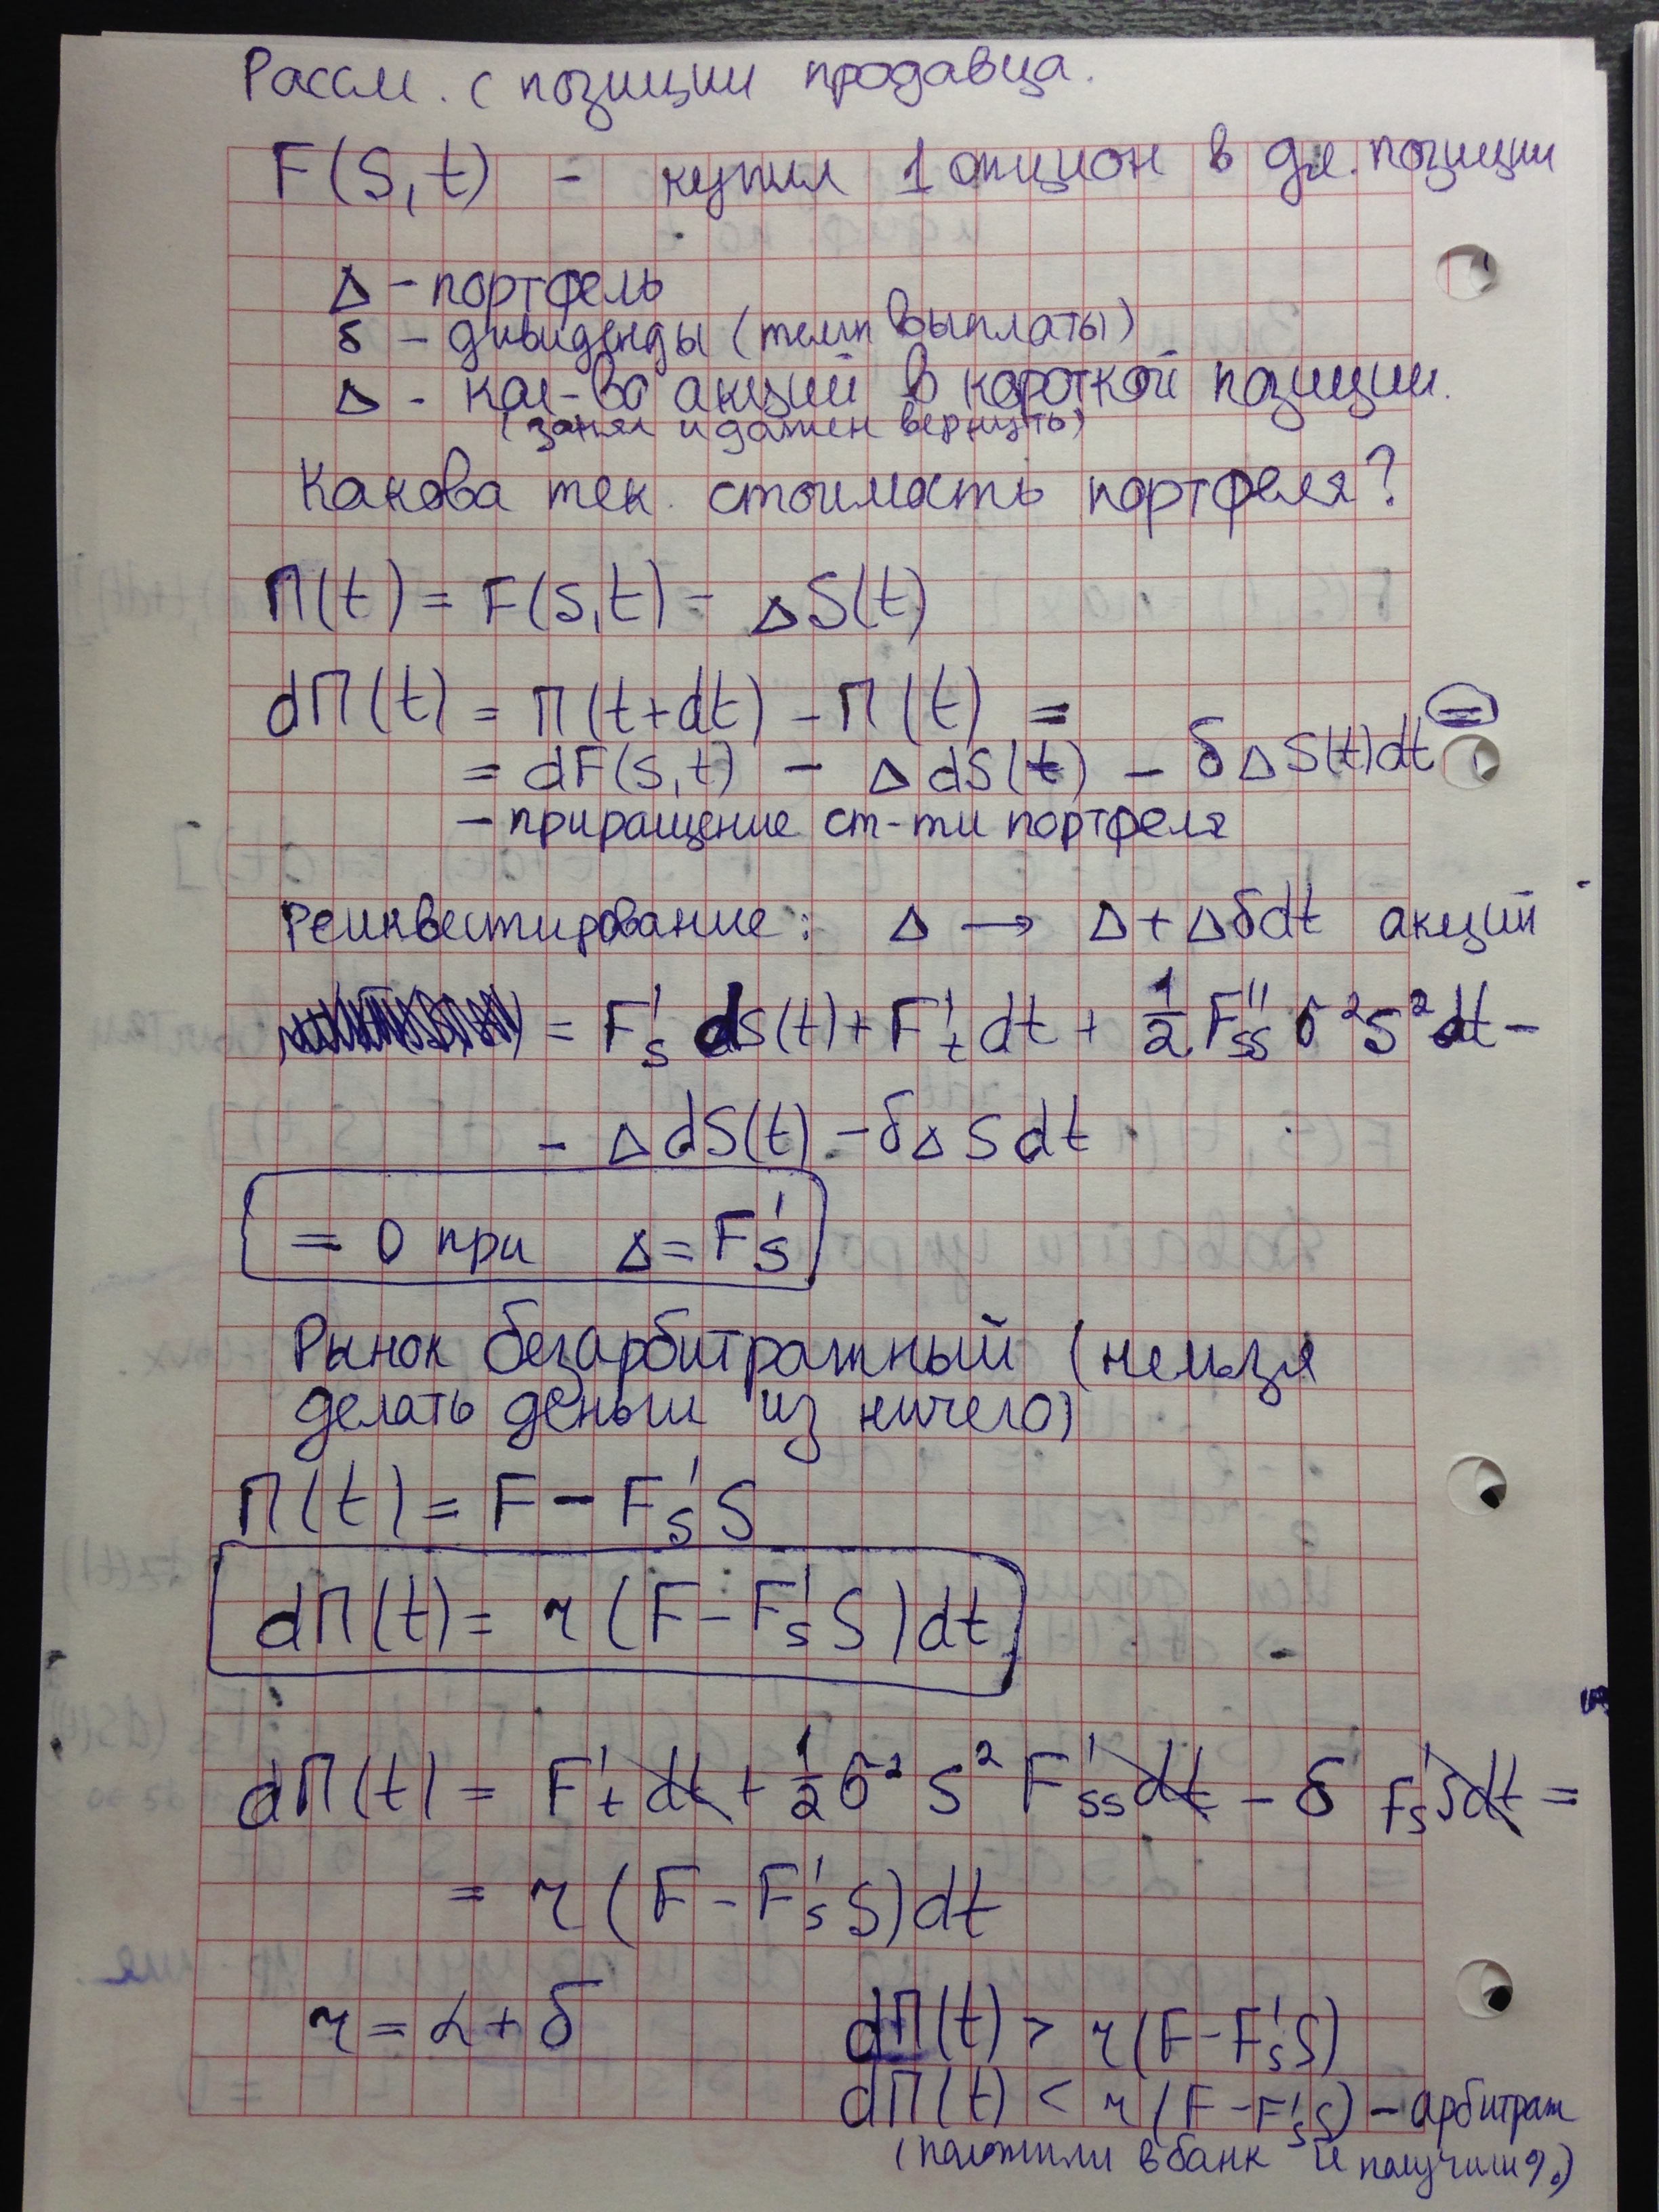 Рассм. с позиции продавца.
F(S,t) - купил 1 опцион в дл. позиции
Δ - портфель
δ - дивиденды (темп выплаты)
Δ - кол-во акций в короткой позиции.
(занял и должен вернуть)
Какова тек. стоимость портфеля?
П(t) = F(S,t) - ΔS(t)
dП(t) = П(t+dt) - П(t) =
= dF(S,t) - ΔdS(t) - δΔS(t)dt =
- приращение ст-ти портфеля
Реинвестирование: Δ → Δ + Δδdt акций
= F's dS(t) + F't dt + 1/2 F''ss σ²S²dt -
- ΔdS(t) - δΔSdt
= 0 при Δ = F's
Рынок безарбитражный (нельзя
делать деньги из ничего)
П(t) = F - F's S
dП(t) = r(F - F's S)dt
dП(t) = F't dt + 1/2 σ² S² F'ss dt - δ F's Sdt =
= r(F - F's S)dt
r = α + δ
dП(t) > r(F - F's S)
dП(t) < r(F - F's S) - арбитраж
(положили в банк и получили %)